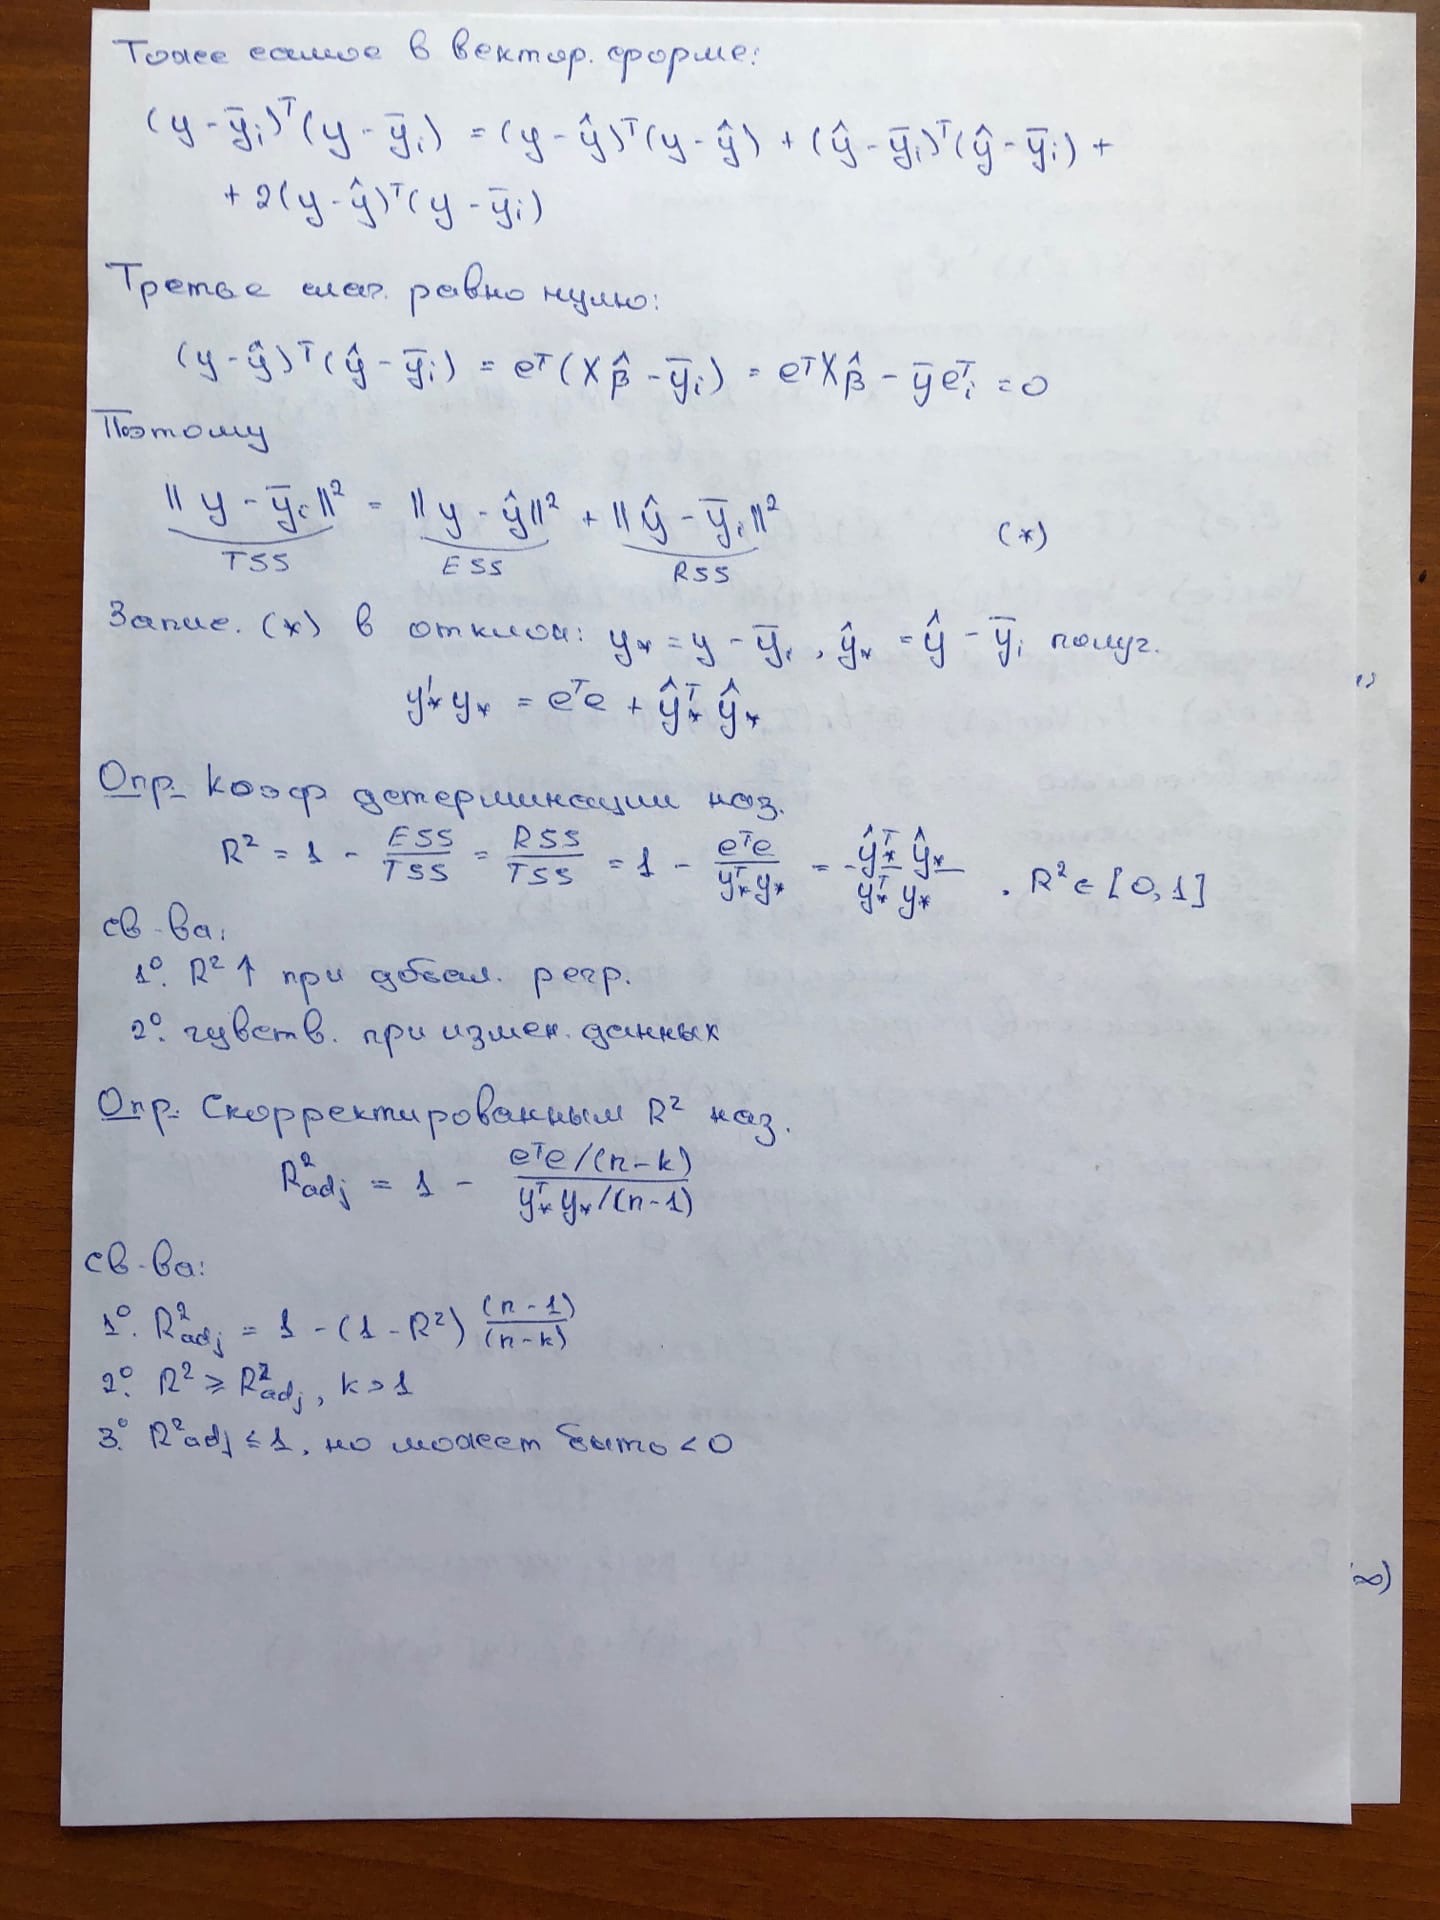 Тоже самое в вектор. форме:
(y - ȳi)ᵀ(y - ȳi) = (y - ŷ)ᵀ(y - ŷ) + (ŷ - ȳi)ᵀ(ŷ - ȳi) +
+ 2(y - ŷ)ᵀ(y - ȳi)
Третье слаг. равно нулю:
(y - ŷ)ᵀ(ŷ - ȳi) = eᵀ(Xβ̂ - ȳi) = eᵀXβ̂ - ȳeᵀi = 0
Поэтому
‖y - ȳi‖² = ‖y - ŷ‖² + ‖ŷ - ȳi‖² (*)
TSS ESS RSS
Запис. (*) в отклон: y* = y - ȳi, ŷ* = ŷ - ȳi получ.
y'* y* = eᵀe + ŷ*ᵀ ŷ*
Опр. Коэф детерминации наз.
R² = 1 - ESS/TSS = RSS/TSS = 1 - eᵀe/y*ᵀy* = ŷ*ᵀŷ*/y*ᵀy* . R² ∈ [0,1]
св-ва:
1°. R² ↑ при добавл. регр.
2°. чувств. при измен. данных
Опр. Скорректированным R² наз.
R²adj = 1 - eᵀe/(n-k) / y*ᵀy*/(n-1)
св-ва:
1°. R²adj = 1 - (1 - R²) (n-1)/(n-k)
2°. R² ⩾ R²adj, k > 1
3°. R²adj ≤ 1, но может быть < 0
∞)